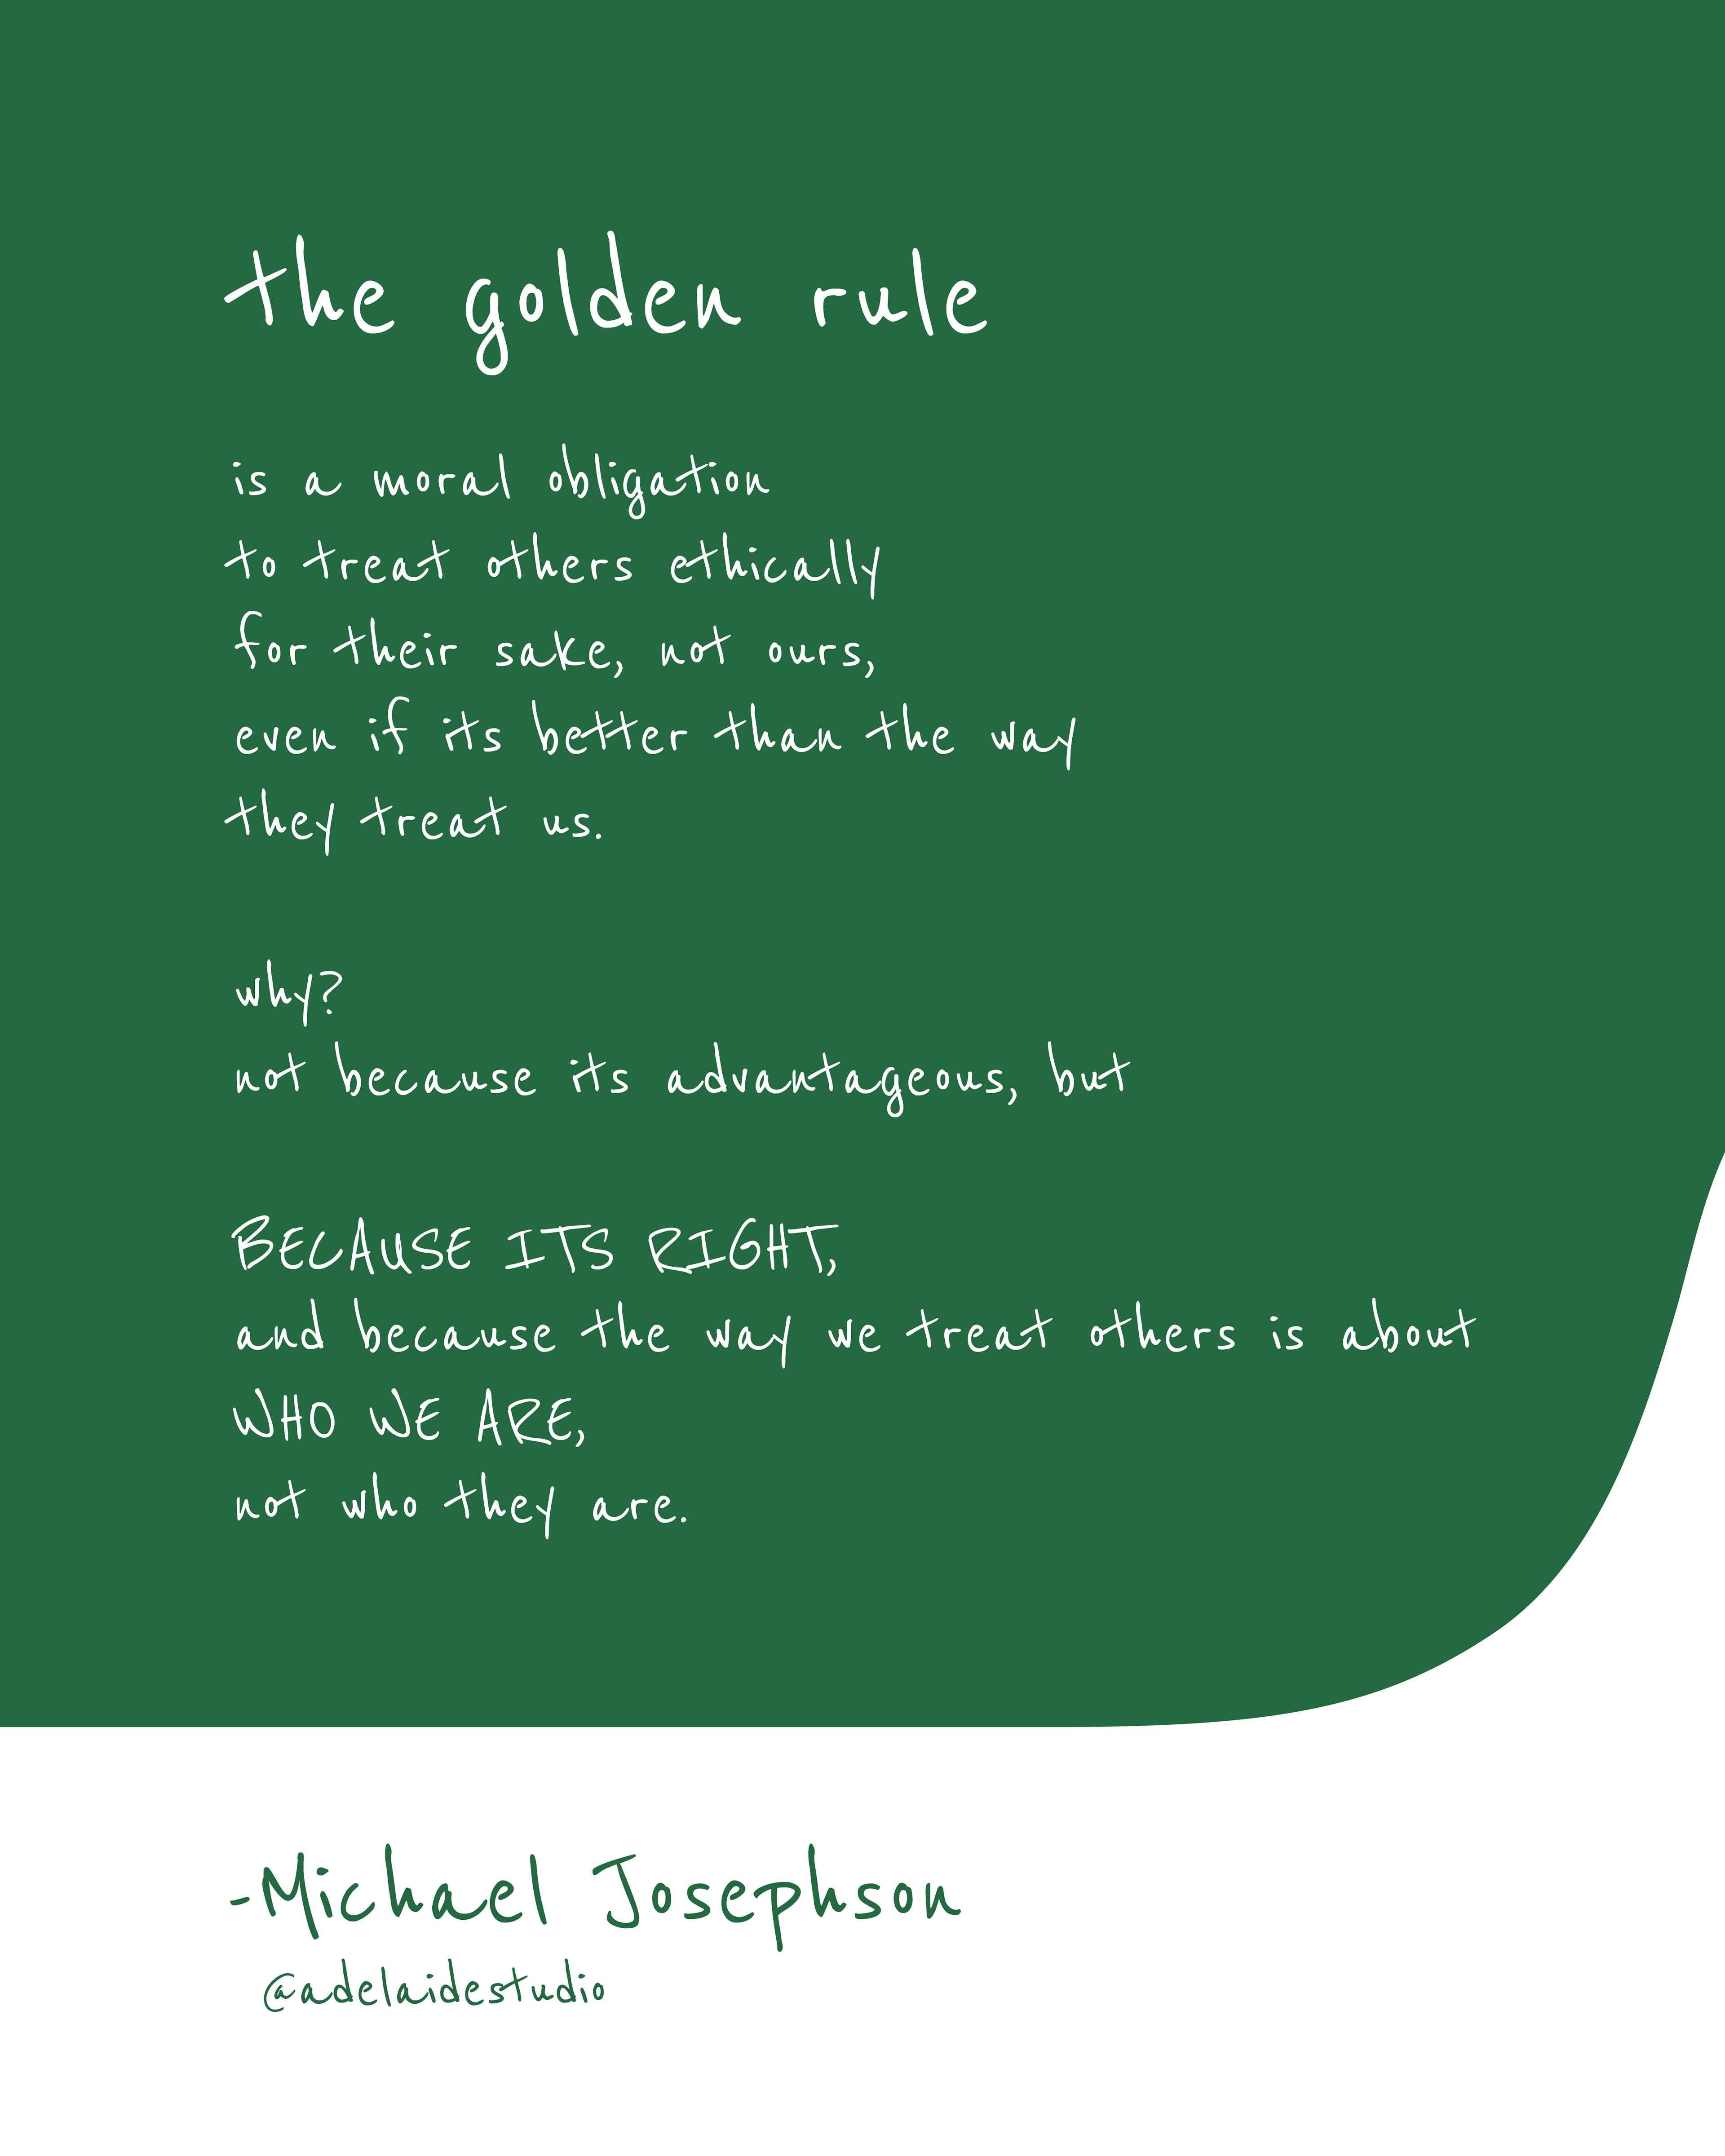 the golden rule
is a moral obligation
to treat others ethically
for their sake, not ours,
even if its better than the way
they treat us.
why?
not because its advantageous, but
BECAUSE ITS RIGHT,
and because the way we treat others is about
WHO WE ARE,
not who they are.
-Michael Josephson
@adelaidestudio